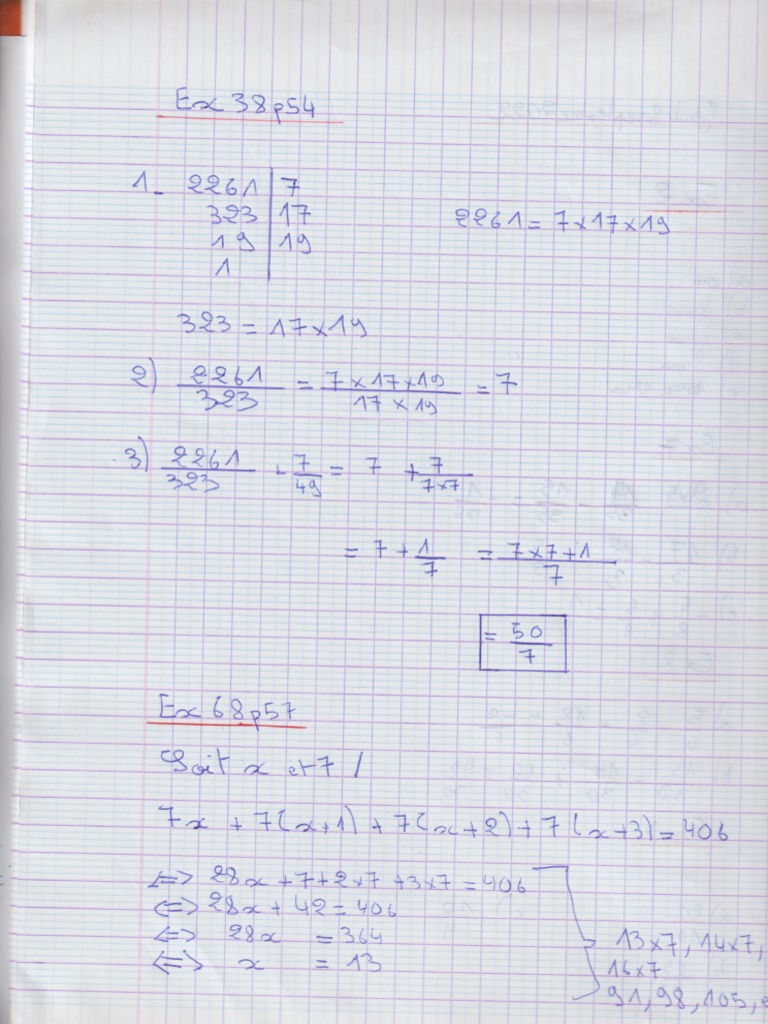 Ex 38p54
1- 2261 | 7
323 | 17
19 | 19
1
2261 = 7×17×19
323 = 17×19
2) 2261/323 = 7×17×19/17×19 = 7
3) 2261/323 + 7/49 = 7 + 7/7×7
= 7 + 1/7 = 7×7+1/7
= 50/7
Ex 68p57
Soit x et 7 /
7x + 7(x+1) + 7(x+2) + 7(x+3) = 406
<=> 28x + 7 + 2×7 + 3×7 = 406
<=> 28x + 42 = 406
<=> 28x = 364
<=> x = 13
13×7, 14×7,
16×7
91, 98, 105, e